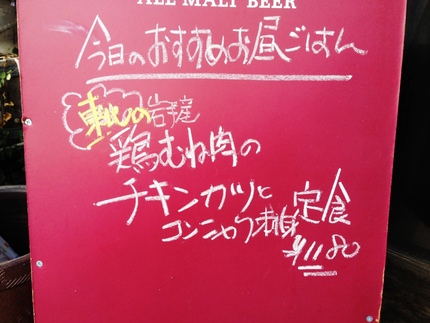 ALL MALT BEER
今日のおすすめお昼ごはん
岩手産
鶏むね肉の
チキンカツと
コンニャク刺身定食
¥1180